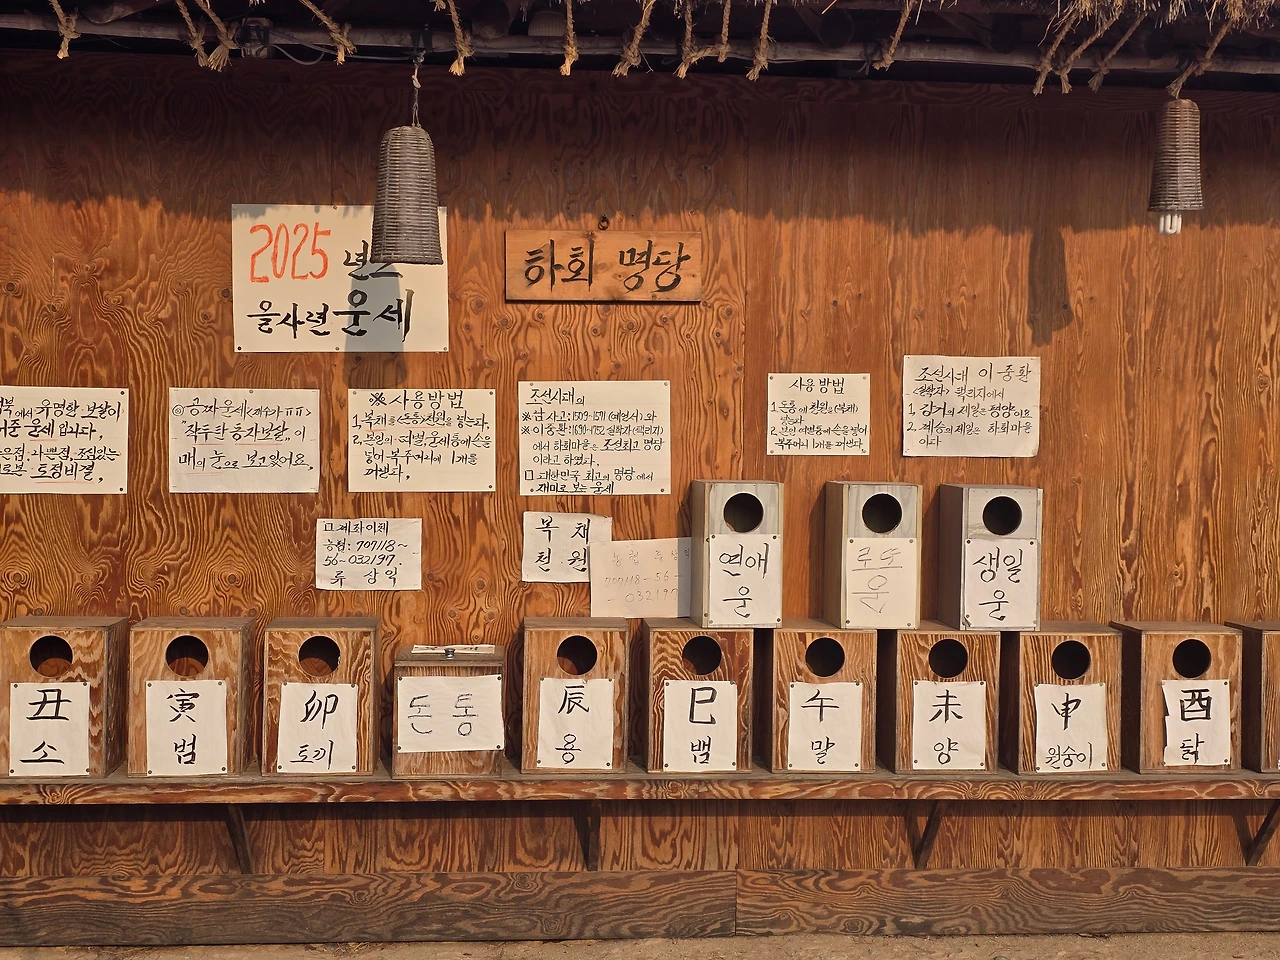 2025 년
을사련 운세
하회 명당
에서 유명한 보살이
운세 입니다,
나쁜점, 조심있는
토정비결,
◎ 공짜운세<재수가ㅠㅠ>
"작두탄 동자보살" 이
매의 눈으로 보고있어요,
※ 사용방법
1, 복채를 <돈통>천원을 넣는다,
2, 본인의 여별, 운세통에 손을
넣어 복주머니에 1개를
꺼낸다,
조선시대의
※ 이중환: 1690~1752, 실학자 <택리지>
에서 하회마을은 조선최고 명당
이라고 하였다,
□ 대한민국 최고의 명당 에서
재미로 보는 운세
사용방법
1. 돈통에 천원을 (복채)
넣는다
2. 본인 여별통에 손을 넣어
복주머니 1개를 꺼낸다,
조선시대 이중환
<실학자> 택리지에서
2. 제승의 제일은 하회마을
이다
□ 계좌이체
농협: 707118~
56~032197.
류 상 익
복 채
천 원
농협 류상익
707118-56-
-032197
연애
운
생일
운
丑
소
寅
범
卯
토끼
돈 통
辰
용
巳
뱀
午
말
未
양
申
원숭이
酉
닭